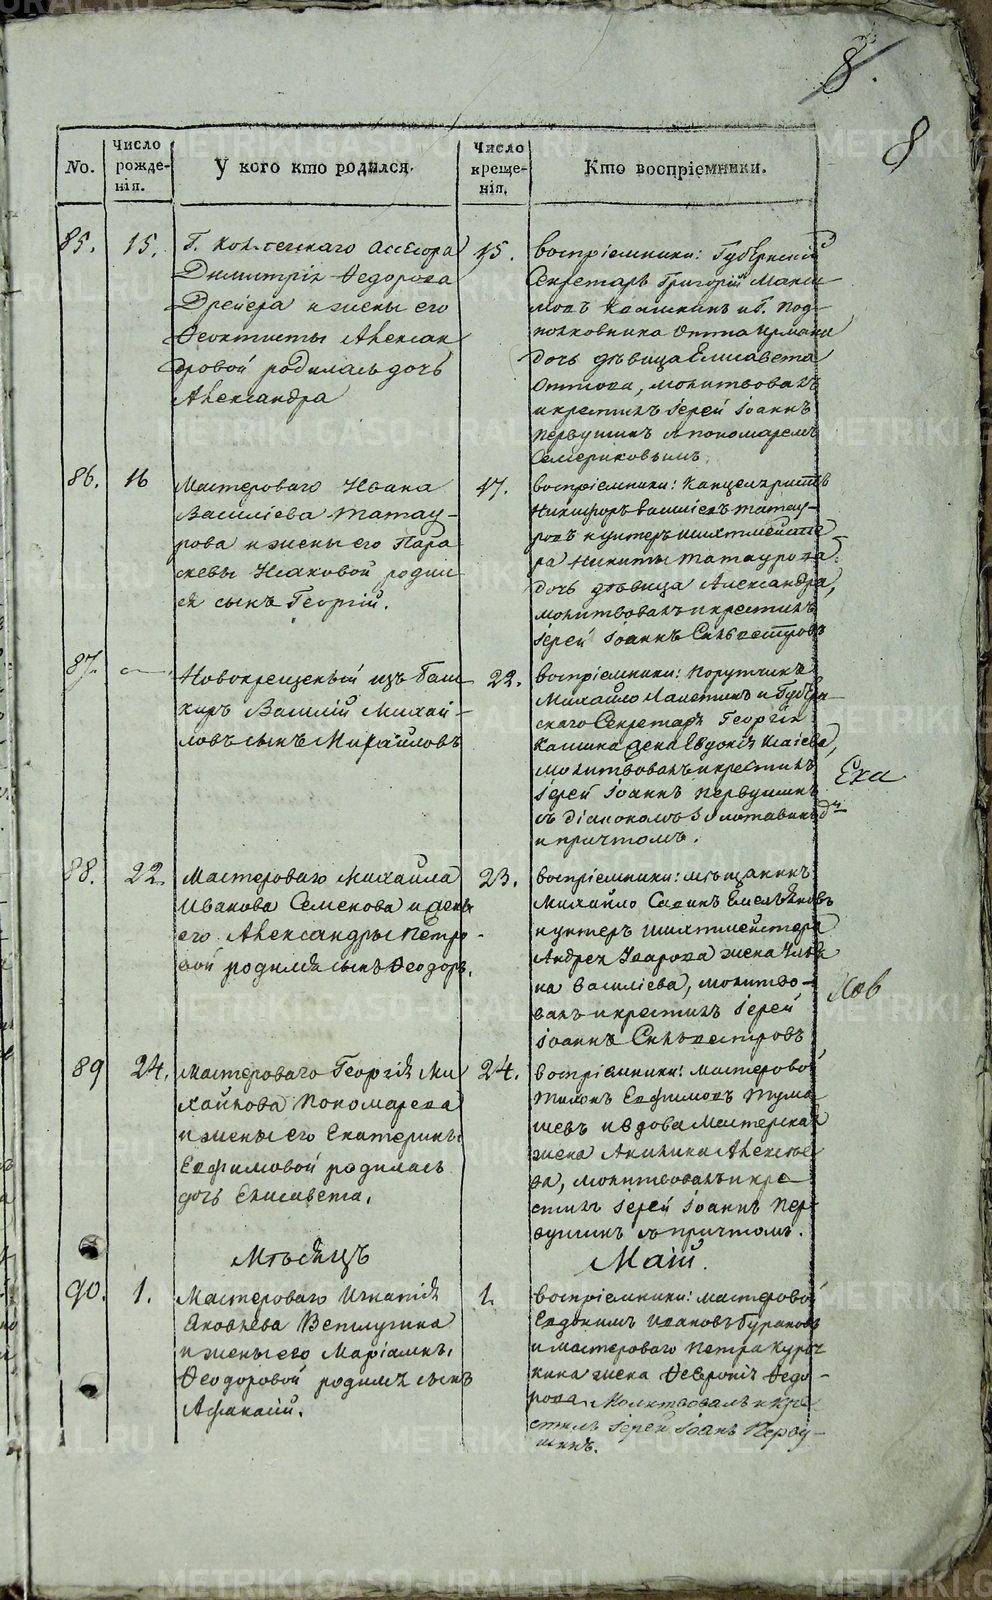 8.
8
No.
Число рожденія.
У кого кто родился.
Число крещенія.
Кто воспріемники.
85.
15.
Г. Коллегскаго Ассесора
Димитрія Ѳедорова
Дрейера и жены его
Ѳеоктисты Алексан
дровой родилась дочь
Александра
15.
воспріемники: Губернскій
Секретарь Григорій Макси
мовъ Калшкинъ и Г. Под-
полковника Отта Ирмана
дочь дѣвица Елисавета
Оттова, молитвовалъ
и крестилъ Іерей Іоаннъ
Первушинъ с пономаремъ
Семериковымъ.
86.
16
Мастероваго Ивана
Василіева Татау-
рова и жены его Пара
скевы Исаковой родил
ся сынъ Георгій.
17.
воспріемники: Канцеляристъ
Никифоръ Василіевъ Татау-
ровъ и унтеръ шихтмейсте
ра Никиты Татаурова
дочь дѣвица Александра,
молитвовалъ и крестилъ
Іерей Іоаннъ Сильвестровъ
87.
Новокрещеный изъ Баш
киръ Василій Михай-
ловъ сынъ Михайловъ
22.
воспріемники: Порутчикъ
Михайло и Губерн-
скаго Секретаря Георгія
Калшина жена Евдокія Исаіева,
молитвовалъ и крестилъ
Іерей Іоаннъ Первушинъ
съ діакономъ Золотавинымъ
и причтомъ.
88.
22.
Мастероваго Михайла
Иванова Семенова и жены
его Александры Петро-
вой родился сынъ Ѳеодоръ.
23.
воспріемники: мѣщанинъ
Михайло Савинъ Емельяновъ
и унтеръ шихтмейстера
Андрея Уварова жена Улья
на Василіева, молитво-
валъ и крестилъ Іерей
Іоаннъ Сильвестровъ
89
24.
Мастероваго Георгія Ми
хайлова Пономарева
и жены его Екатерины
Евфимовой родилась
дочь Елисавета.
24.
воспріемники: мастеровой
Тихонъ Евфимовъ Тума
шевъ и вдова Мастерская
жена Акилина Алексѣе
ва, молитвовалъ и кре
стилъ Іерей Іоаннъ Пер-
вушинъ съ причтомъ.
Мѣсяцъ Маій.
90.
1.
Мастероваго Игнатія
Яковлева Ветлугина
и жены его Маріамны
Ѳеодоровой родился сынъ
Афанасій.
1.
воспріемники: мастеровой
Евдокимъ Ивановъ Бураковъ
и мастероваго Петра Куроч
кина жена Ѳевронія Ѳедо-
рова. Молитвовалъ и кре
стилъ Іерей Іоаннъ Перву-
шинъ.
METRIKI.GASO-URAL.RU